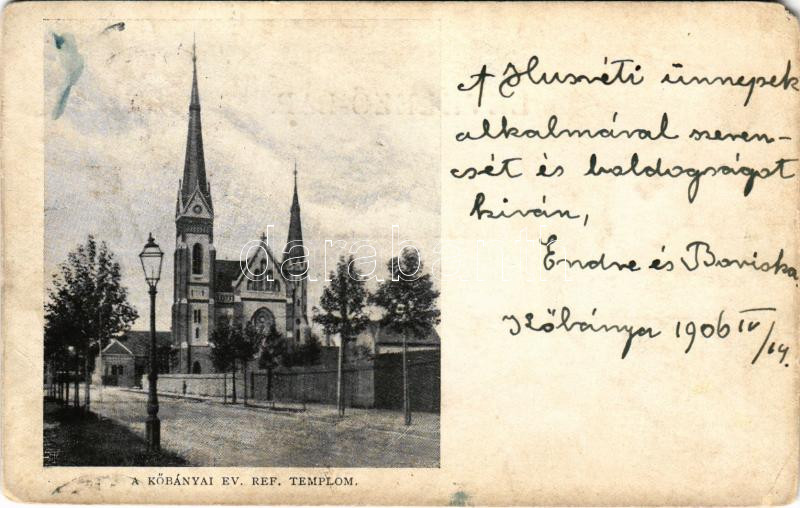 A Husvéti ünnepek
alkalmával szeren-
csét és boldogságot
kíván,
Endre és Boriska.
Kőbánya 1906 IV/14.
A KŐBÁNYAI EV. REF. TEMPLOM.
darabanth.com